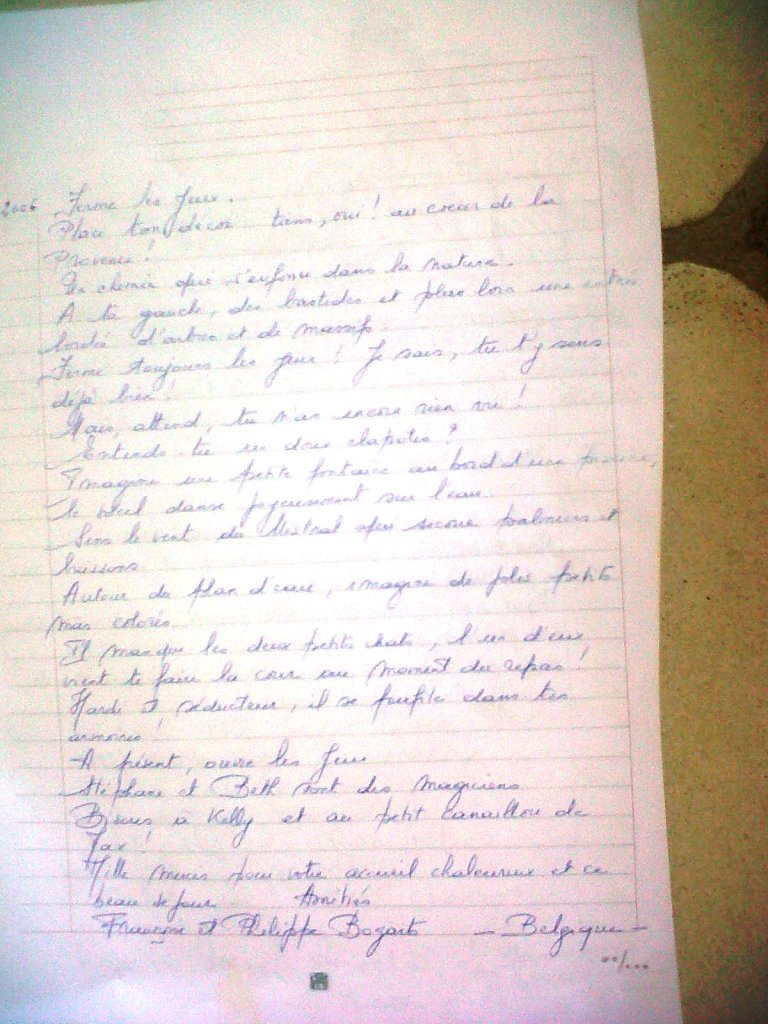 2006 Ferme les yeux.
Place ton décor tiens, oui! au coeur de la
Provence!
Un chemin qui s'enfonce dans la nature.
A ta gauche, des bastides et plus loin une
bordée d'arbres et de massifs.
Ferme toujours les yeux! Je sais, tu t'y sens
déjà bien!
Mais, attend, tu n'as encore rien vu!
Entends-tu un doux clapotis?
Imagine une petite fontaine au bord d'une piscine,
le soleil danse joyeusement sur l'eau.
Sens le vent du Mistral qui secoue palmiers et
buissons.
Autour du plan d'eau, imagine de jolis petits
mas colorés.
Il manque les deux petits chats, l'un d'eux,
vient te faire la cour au moment du repas!
Hardi et séducteur, il se faufile dans tes
armoires!
A présent, ouvre les yeux
Stéphane et Beth sont des magiciens
Bisous, à Kelly et au petit canaillou de
Jax!
Mille mercis pour votre accueil chaleureux et ce
beau séjour Amitiés
Françoise et Philippe Bogarts - Belgique -